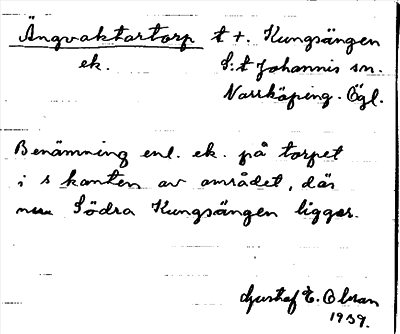 Ängvaktartorp t +. Kungsängen
ek. S:t Johannis sn.
Norrköping. Ögl.
Benämning enl. ek. på torpet
i s kanten av området, där
nu Södra Kungsängen ligger.
Gustaf E. Olsson
1939.